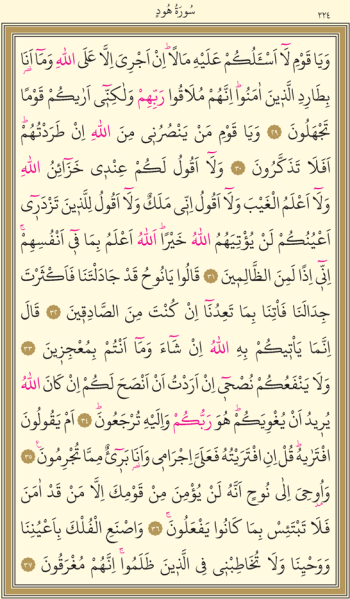 سُورَةُ هُودٍ
٢٢٤
وَيَا قَوْمِ لَٓا اَسْـَٔلُكُمْ عَلَيْهِ مَالًاۜ اِنْ اَجْرِيَ اِلَّا عَلَى اللّٰهِ وَمَٓا اَنَا۬
بِطَارِدِ الَّذ۪ينَ اٰمَنُواۜ اِنَّهُمْ مُلَاقُوا رَبِّهِمْ وَلٰكِنّ۪ٓي اَرٰيكُمْ قَوْمًا
تَجْهَلُونَ ﴿٢٩﴾ وَيَا قَوْمِ مَنْ يَنْصُرُن۪ي مِنَ اللّٰهِ اِنْ طَرَدْتُهُمْۜ
اَفَلَا تَذَكَّرُونَ ﴿٣٠﴾ وَلَٓا اَقُولُ لَكُمْ عِنْد۪ي خَزَٓائِنُ اللّٰهِ
وَلَٓا اَعْلَمُ الْغَيْبَ وَلَٓا اَقُولُ اِنّ۪ي مَلَكٌ وَلَٓا اَقُولُ لِلَّذ۪ينَ تَزْدَر۪ٓي
اَعْيُنُكُمْ لَنْ يُؤْتِيَهُمُ اللّٰهُ خَيْرًاۜ اَللّٰهُ اَعْلَمُ بِمَا ف۪ٓي اَنْفُسِهِمْۚ
اِنّ۪ٓي اِذًا لَمِنَ الظَّالِم۪ينَ ﴿٣١﴾ قَالُوا يَانُوحُ قَدْ جَادَلْتَنَا فَاَكْثَرْتَ
جِدَالَنَا فَأْتِنَا بِمَا تَعِدُنَٓا اِنْ كُنْتَ مِنَ الصَّادِق۪ينَ ﴿٣٢﴾ قَالَ
اِنَّمَا يَأْت۪يكُمْ بِهِ اللّٰهُ اِنْ شَٓاءَ وَمَٓا اَنْتُمْ بِمُعْجِز۪ينَ ﴿٣٣﴾
وَلَا يَنْفَعُكُمْ نُصْح۪ٓي اِنْ اَرَدْتُ اَنْ اَنْصَحَ لَكُمْ اِنْ كَانَ اللّٰهُ
يُر۪يدُ اَنْ يُغْوِيَكُمْۜ هُوَ رَبُّكُمْ وَاِلَيْهِ تُرْجَعُونَۜ ﴿٣٤﴾ اَمْ يَقُولُونَ
افْتَرٰيهُۜ قُلْ اِنِ افْتَرَيْتُهُ فَعَلَيَّ اِجْرَام۪ي وَاَنَا۬ بَر۪ٓيءٌ مِمَّا تُجْرِمُونَ۟ ﴿٣٥﴾
وَاُو۫حِيَ اِلٰى نُوحٍ اَنَّهُ لَنْ يُؤْمِنَ مِنْ قَوْمِكَ اِلَّا مَنْ قَدْ اٰمَنَ
فَلَا تَبْتَئِسْ بِمَا كَانُوا يَفْعَلُونَۚ ﴿٣٦﴾ وَاصْنَعِ الْفُلْكَ بِاَعْيُنِنَا
وَوَحْيِنَا وَلَا تُخَاطِبْن۪ي فِي الَّذ۪ينَ ظَلَمُواۚ اِنَّهُمْ مُغْرَقُونَ ﴿٣٧﴾